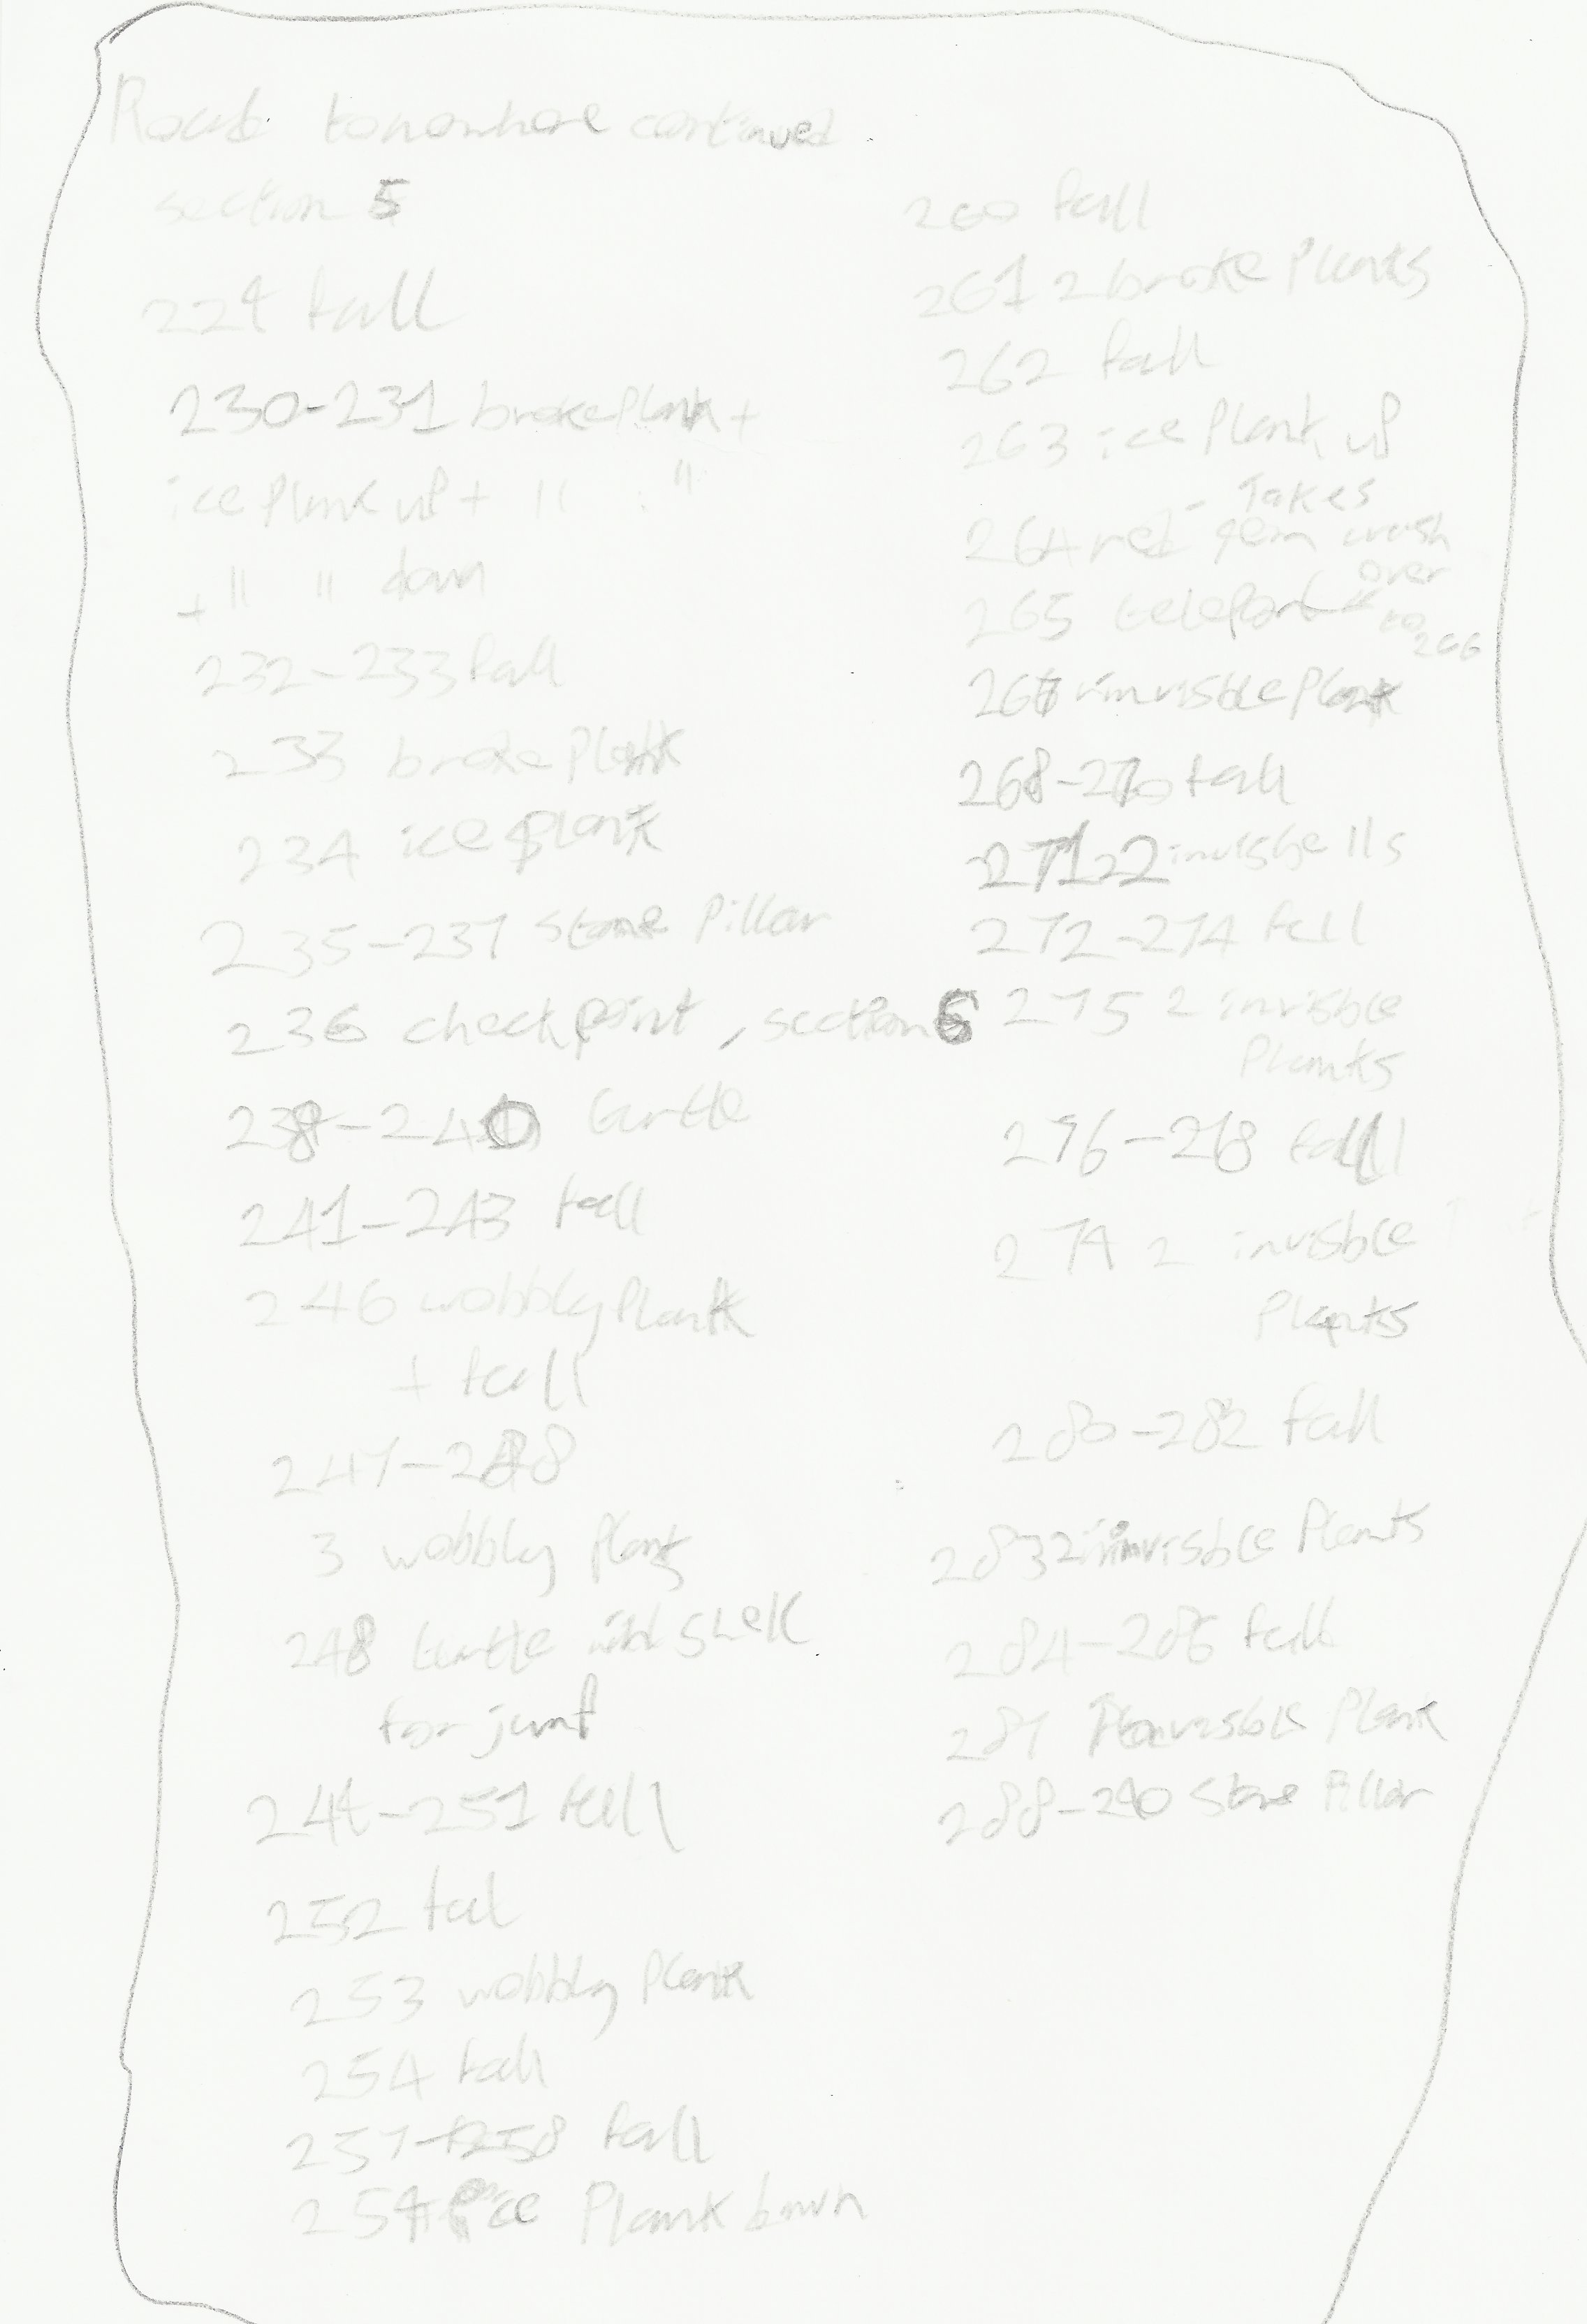 Road to nowhere continued
section 5
229 fall
230-231 broke Plank +
ice Plank up + " "
+ " " down
232-233 fall
233 broke Plank
234 ice Plank
235-237 stone Pillar
236 checkpoint, section 6
238-240 turtle
241-243 fall
246 wobbly Plank
+ fall
247-248
3 wobbly Planks
248 turtle with shell
for jump
249-251 fall
252 fall
253 wobbly Plank
254 fall
257-258 fall
259 ice Plank down
260 fall
261 2 broke Planks
262 fall
263 ice Plank up
264 red gem - Takes crash over
265 teleport to 266
267 invisble Plank
268-270 fall
271 2 invisble "s
272-274 fall
275 2 invisble
Planks
276-278 fall
279 2 invisble
Planks
280-282 fall
283 2 invisble Planks
284-286 fall
287 invisble Plank
288-290 Stone Pillar